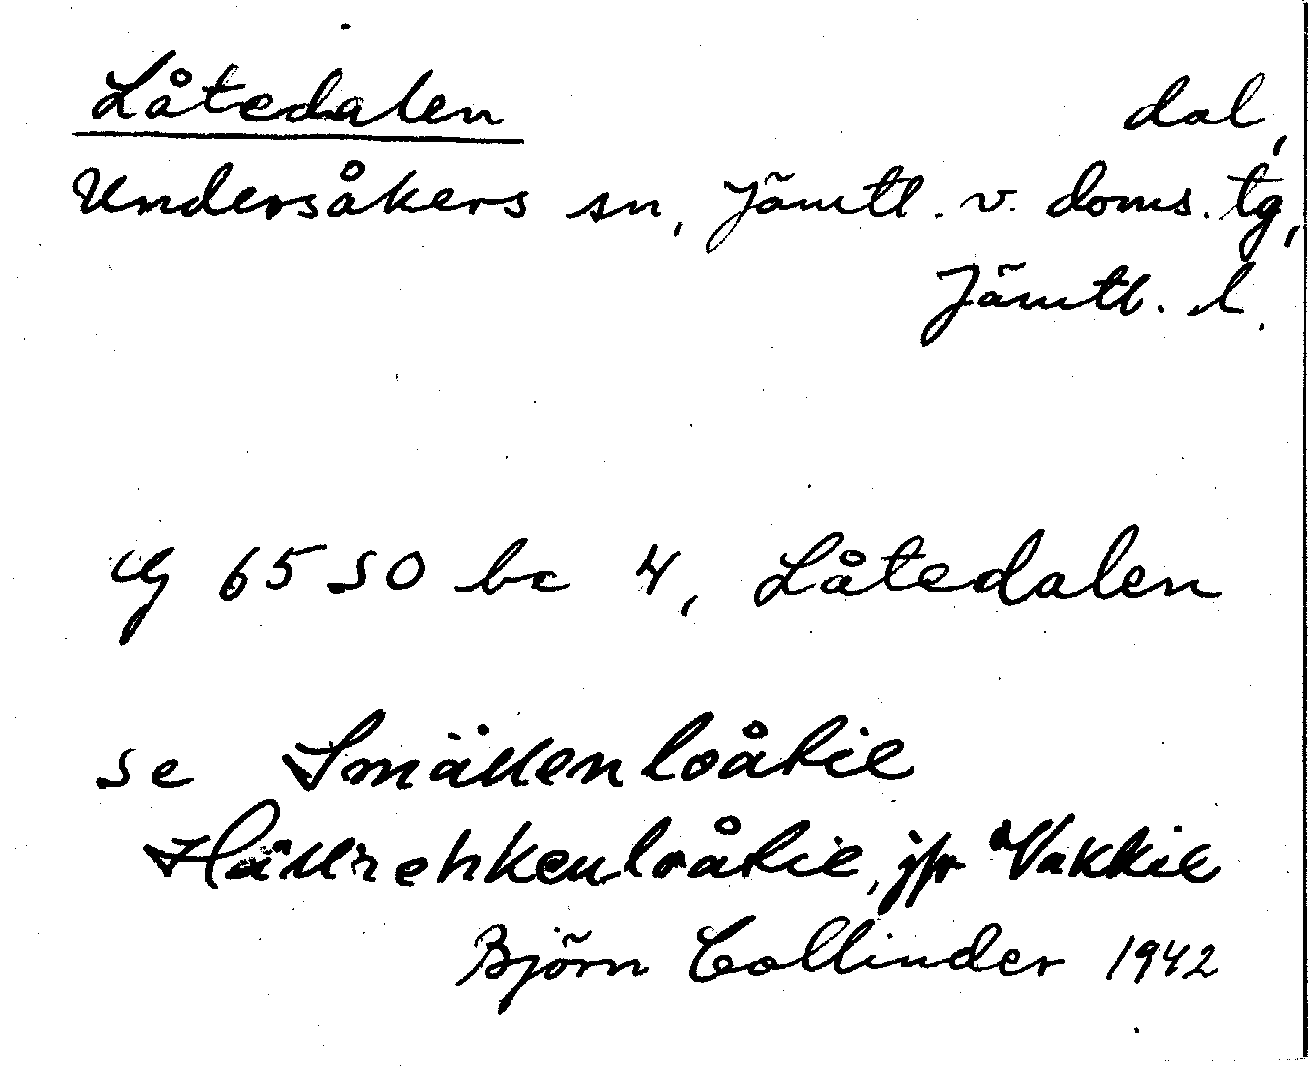 Låtedalen dal,
Undersåkers sn, Jämtl. v. doms. tg,
Jämtl. l.
65 SO bc 4, Låtedalen
se Smäkenloåtie
loåtie, jfr Vakkie
Björn Collinder 1942